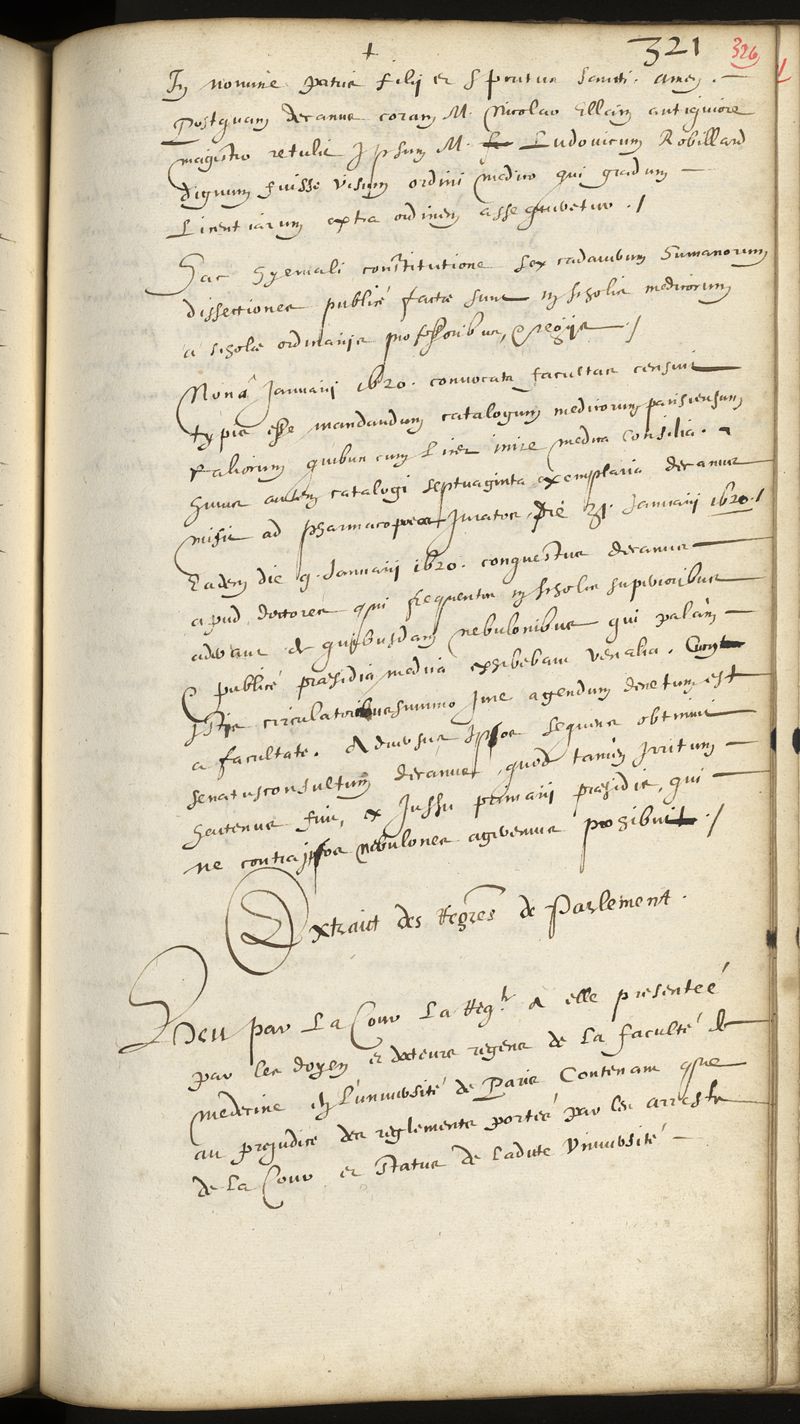 + 321 326
In nomine patris filij et spiritus sancti. amen. —
Postquam decanus coram M. Nicolao Ellain antiquiore
magistro retulit Ipsum M. Ludovicum Robillard
dignum fuisse visum ordini medico qui gradum —
Licentiarum extra ordinem assequeretur ./
Hac hyemali constitutione sex cadaverum humanorum
dissectiones publicè factæ sunt in scholis medicorum
a scholæ ordinarijs professoribus, & regijs ./
Nonâ Januarij 1620. convocata facultas censuit
typis esse mandandum catalogum medicorum parisiensium
&aliorum quibus cum Licet inire medica consilia.
huius autem catalogi septuaginta exemplaria decanus
misit ad pharmacopeos Juratos die 31. Januarij 1620./
Eadem die 9. Januarij 1620. conquestus decanus —
apud doctores qui frequentes in scholis superioribus
aderant de quibusdam nebulonibus qui palàm —
& publicè præsidia medica exhibebant venalia. Cum
Istis circulatoribus summo Jure agendum decretum est
a facultate. Adversus Ipsos sequens obtinuit
senatusconsultum decanus, quod tamen Irritum —
hactenus fuit, ex Jussu primarij præsidis, qui —
ne contra ipsos nebulones ageremus prohibuit ./
Extraict des Registres de Parlement.
Veu par La Cour La Reqte a elle presenteé
par les doyen et docteurs regens de La faculté de
medecine en L'université de Paris Contenant que
au prejudice des reglements porteé par les arrests
de La Cour et statuts de Ladite Université —